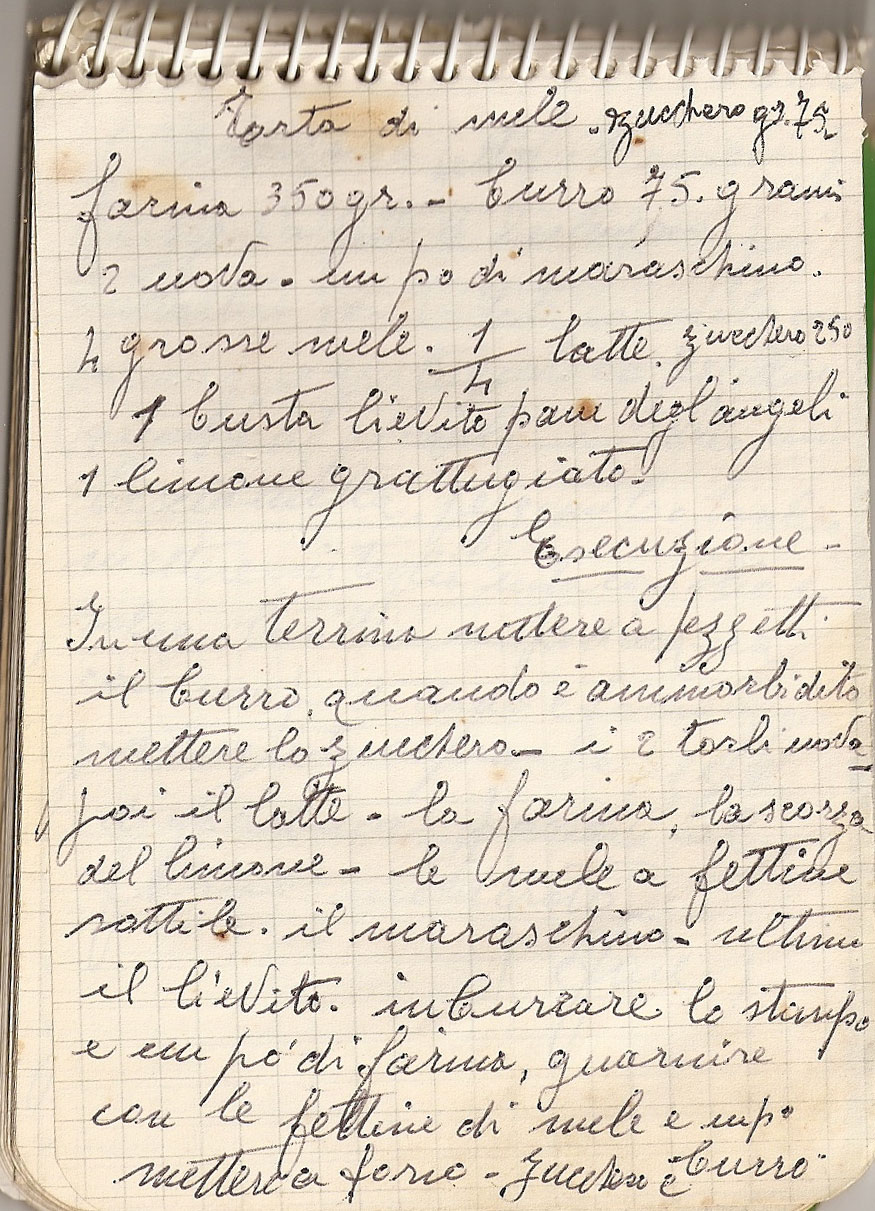 Torta di mele . zucchero gr. 75
farina 350 gr. - burro 75. grami
2 uova - un po di maraschino.
4 grosse mele. 1/4 latte. zucchero 250
1 busta lievito pane degl'angeli
1 limone grattugiato.
Esecuzione -
In una terrina mettere a pezzetti
il burro, quando è ammorbidito
mettere lo zucchero - i 2 torli uova -
poi il latte - la farina, la scorza
del limone - le mele a fettine
sottile. il maraschino - ultimo
il lievito. inburrare lo stampo
e un pó di farina, guarnire
con le fettine di mele e un po
mettere a forno - zucchero e burro